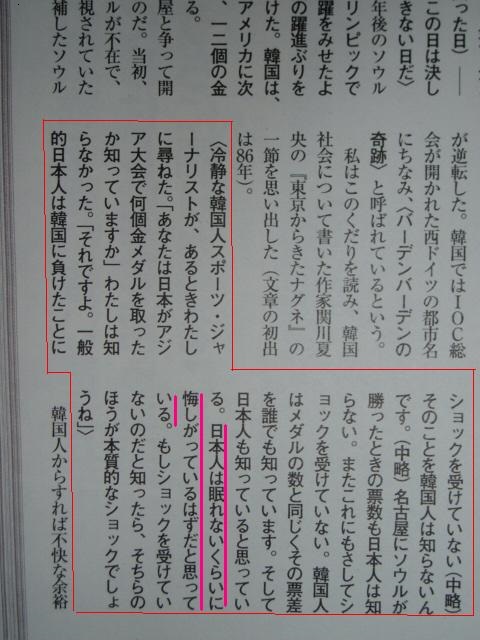 った日〉――
この日は決し
きない日だ〉
年後のソウル
リンピックで
躍をみせたよ
の躍進ぶりを
けた。韓国は、
アメリカに次
、一二個の金
る。
屋と争って開
のだ。当初、
ルが不在で、
視されていた
補したソウル
が逆転した。韓国ではIOC総
会が開かれた西ドイツの都市名
にちなみ、〈バーデンバーデンの
奇跡〉と呼ばれているという。
私はこのくだりを読み、韓国
社会について書いた作家関川夏
央の『東京からきたナグネ』の
一節を思い出した（文章の初出
は86年）。
〈冷静な韓国人スポーツ・ジャ
ーナリストが、あるときわたし
に尋ねた。「あなたは日本がアジ
ア大会で何個金メダルを取った
か知っていますか」わたしは知
らなかった。「それですよ。一般
的日本人は韓国に負けたことに
ショックを受けていない（中略）
そのことを韓国人は知らないん
です。（中略）名古屋にソウルが
勝ったときの票数も日本人は知
らない。またこれにもさしてシ
ョックを受けていない。韓国人
はメダルの数と同じくその票差
を誰でも知っています。そして
日本人も知っていると思ってい
る。日本人は眠れないくらいに
悔しがっているはずだと思って
いる。もしショックを受けてい
ないのだと知ったら、そちらの
ほうが本質的なショックでしょ
うね」〉
韓国人からすれば不快な余裕